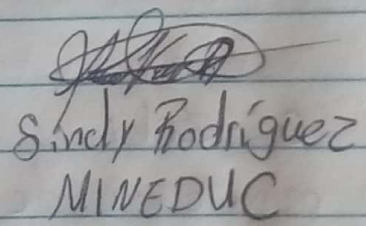 Sindy Rodríguez
MINEDUC